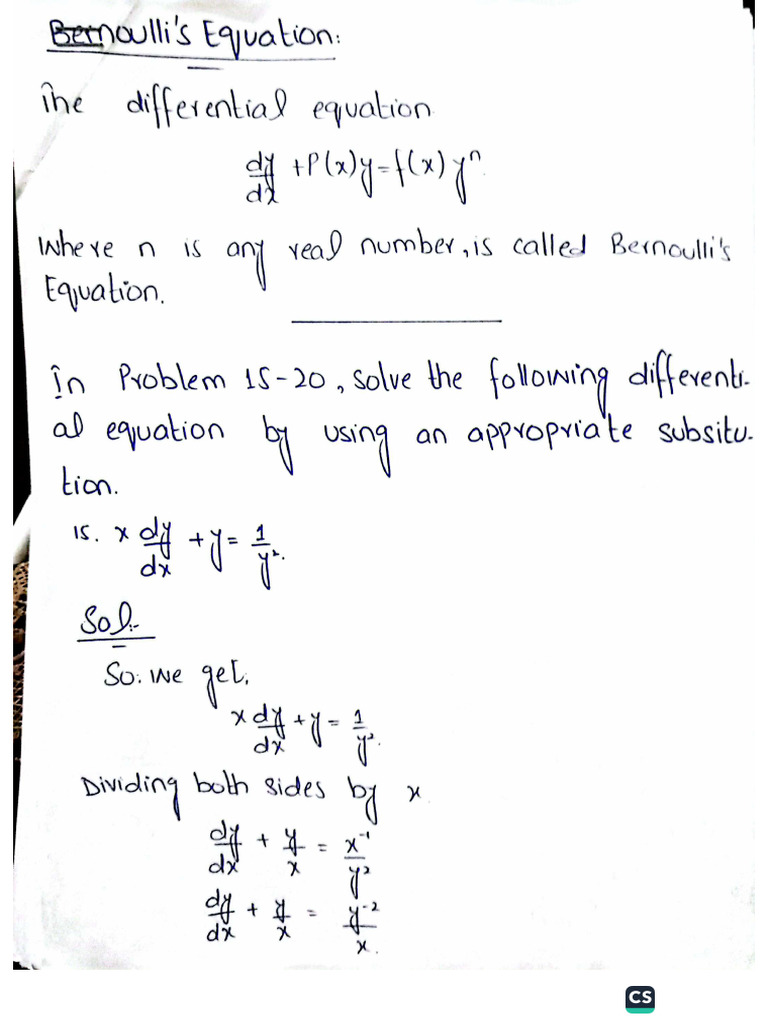 Bernoulli's Equation:
The differential equation
dy/dx + P(x)y = f(x) yⁿ.
where n is any real number, is called Bernoulli's
Equation.
In Problem 15-20, solve the following differenti-
al equation by using an appropriate subsitu-
tion.
15. x dy/dx + y = 1/y².
Sol:-
So: we get,
x dy/dx + y = 1/y².
Dividing both sides by x
dy/dx + y/x = x⁻¹/y²
dy/dx + y/x = y⁻²/x.
CS